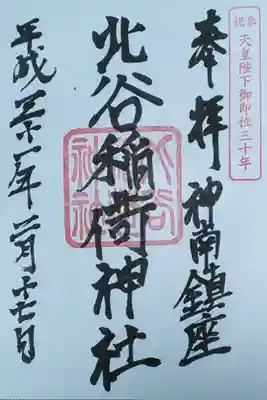 奉祝
天皇陛下御即位三十年
奉拝 神南鎮座
北谷稲荷神社
平成三十一年二月十七日